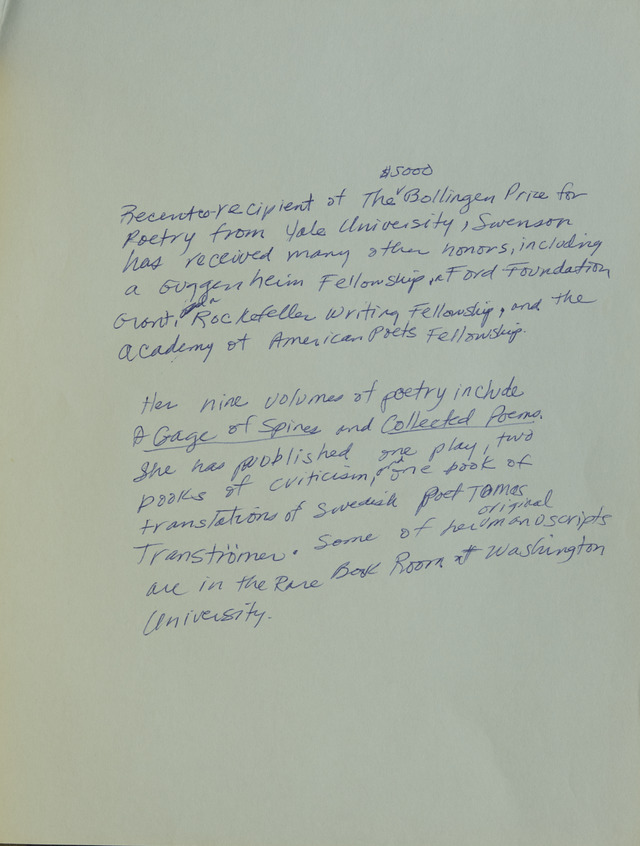 $5000
Recent recipient of The ˅ Bollingen Prize for
Poetry from Yale University, Swenson
has received many other honors, including
a Guggenheim Fellowship, a Ford Foundation
Grant, a Rockefeller Writing Fellowship, and the
Academy of American Poets Fellowship.
Her nine volumes of poetry include
A Gage of Spines and Collected Poems.
She has published one play, two
books of criticism, one book of
translations of Swedish poet Tomas
original
Tranströmer. Some of her manuscripts
are in the Rare Book Room at Washington
University.